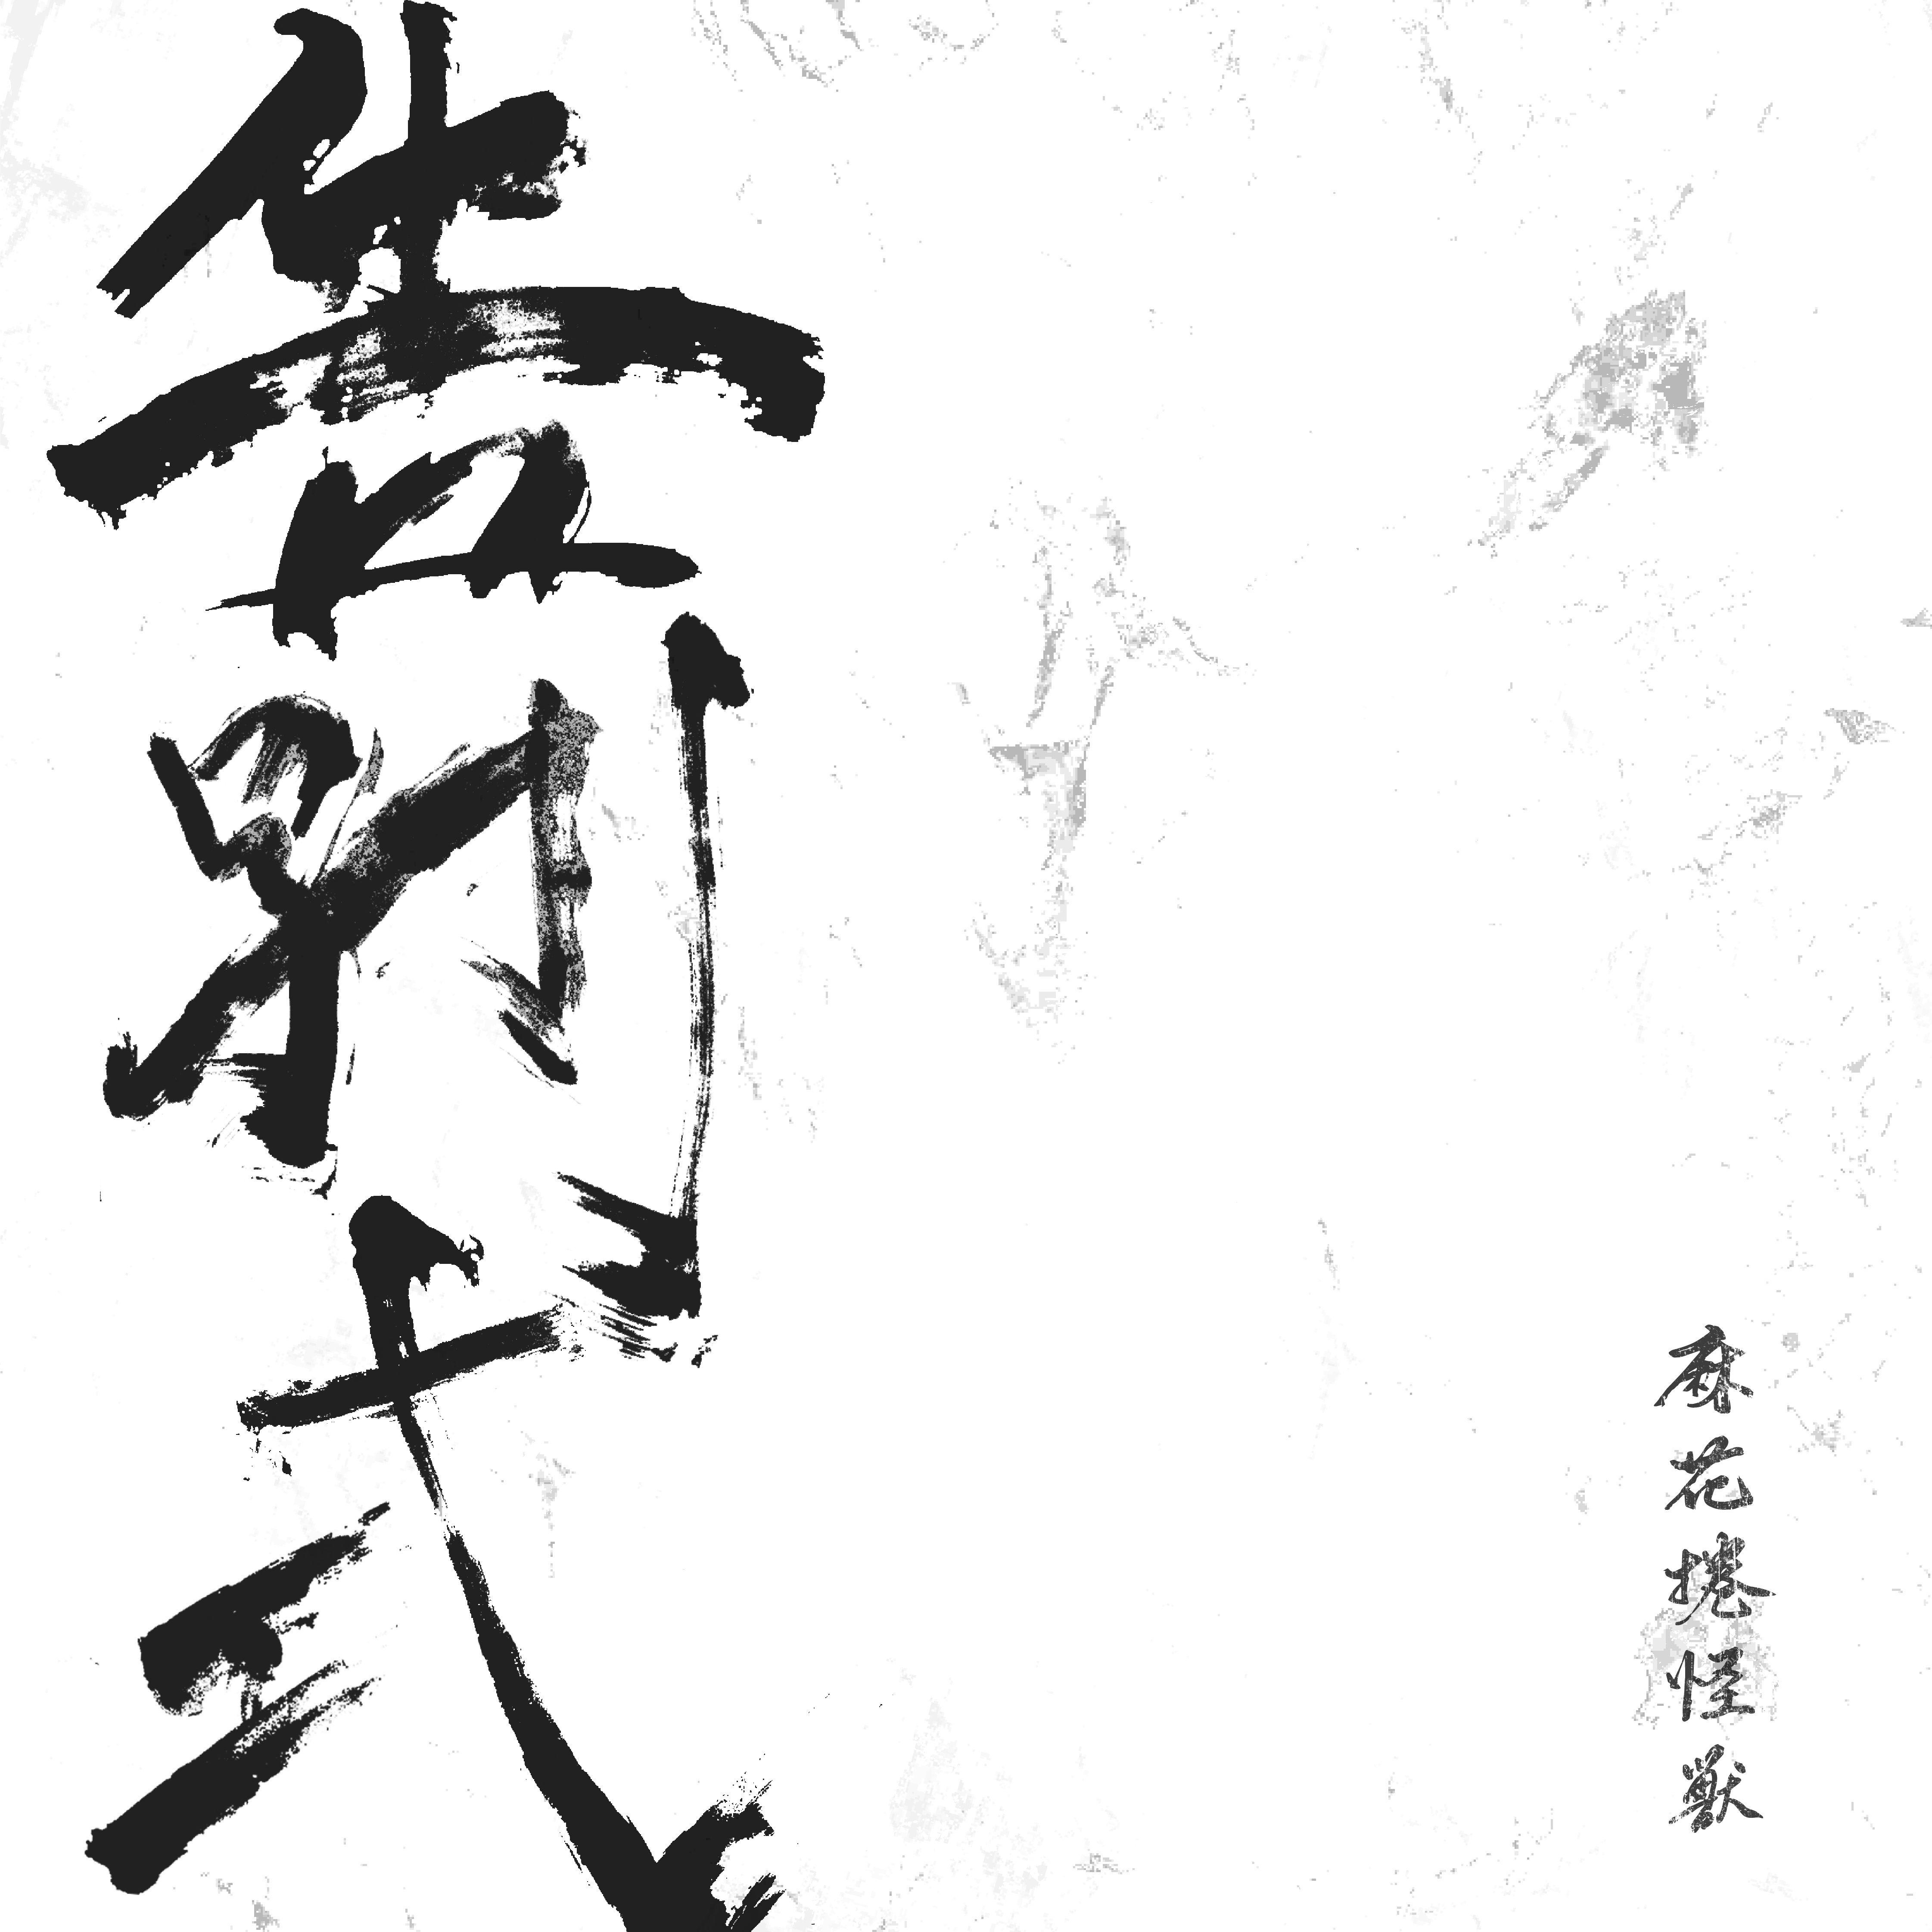 告別式
麻花捲怪獸